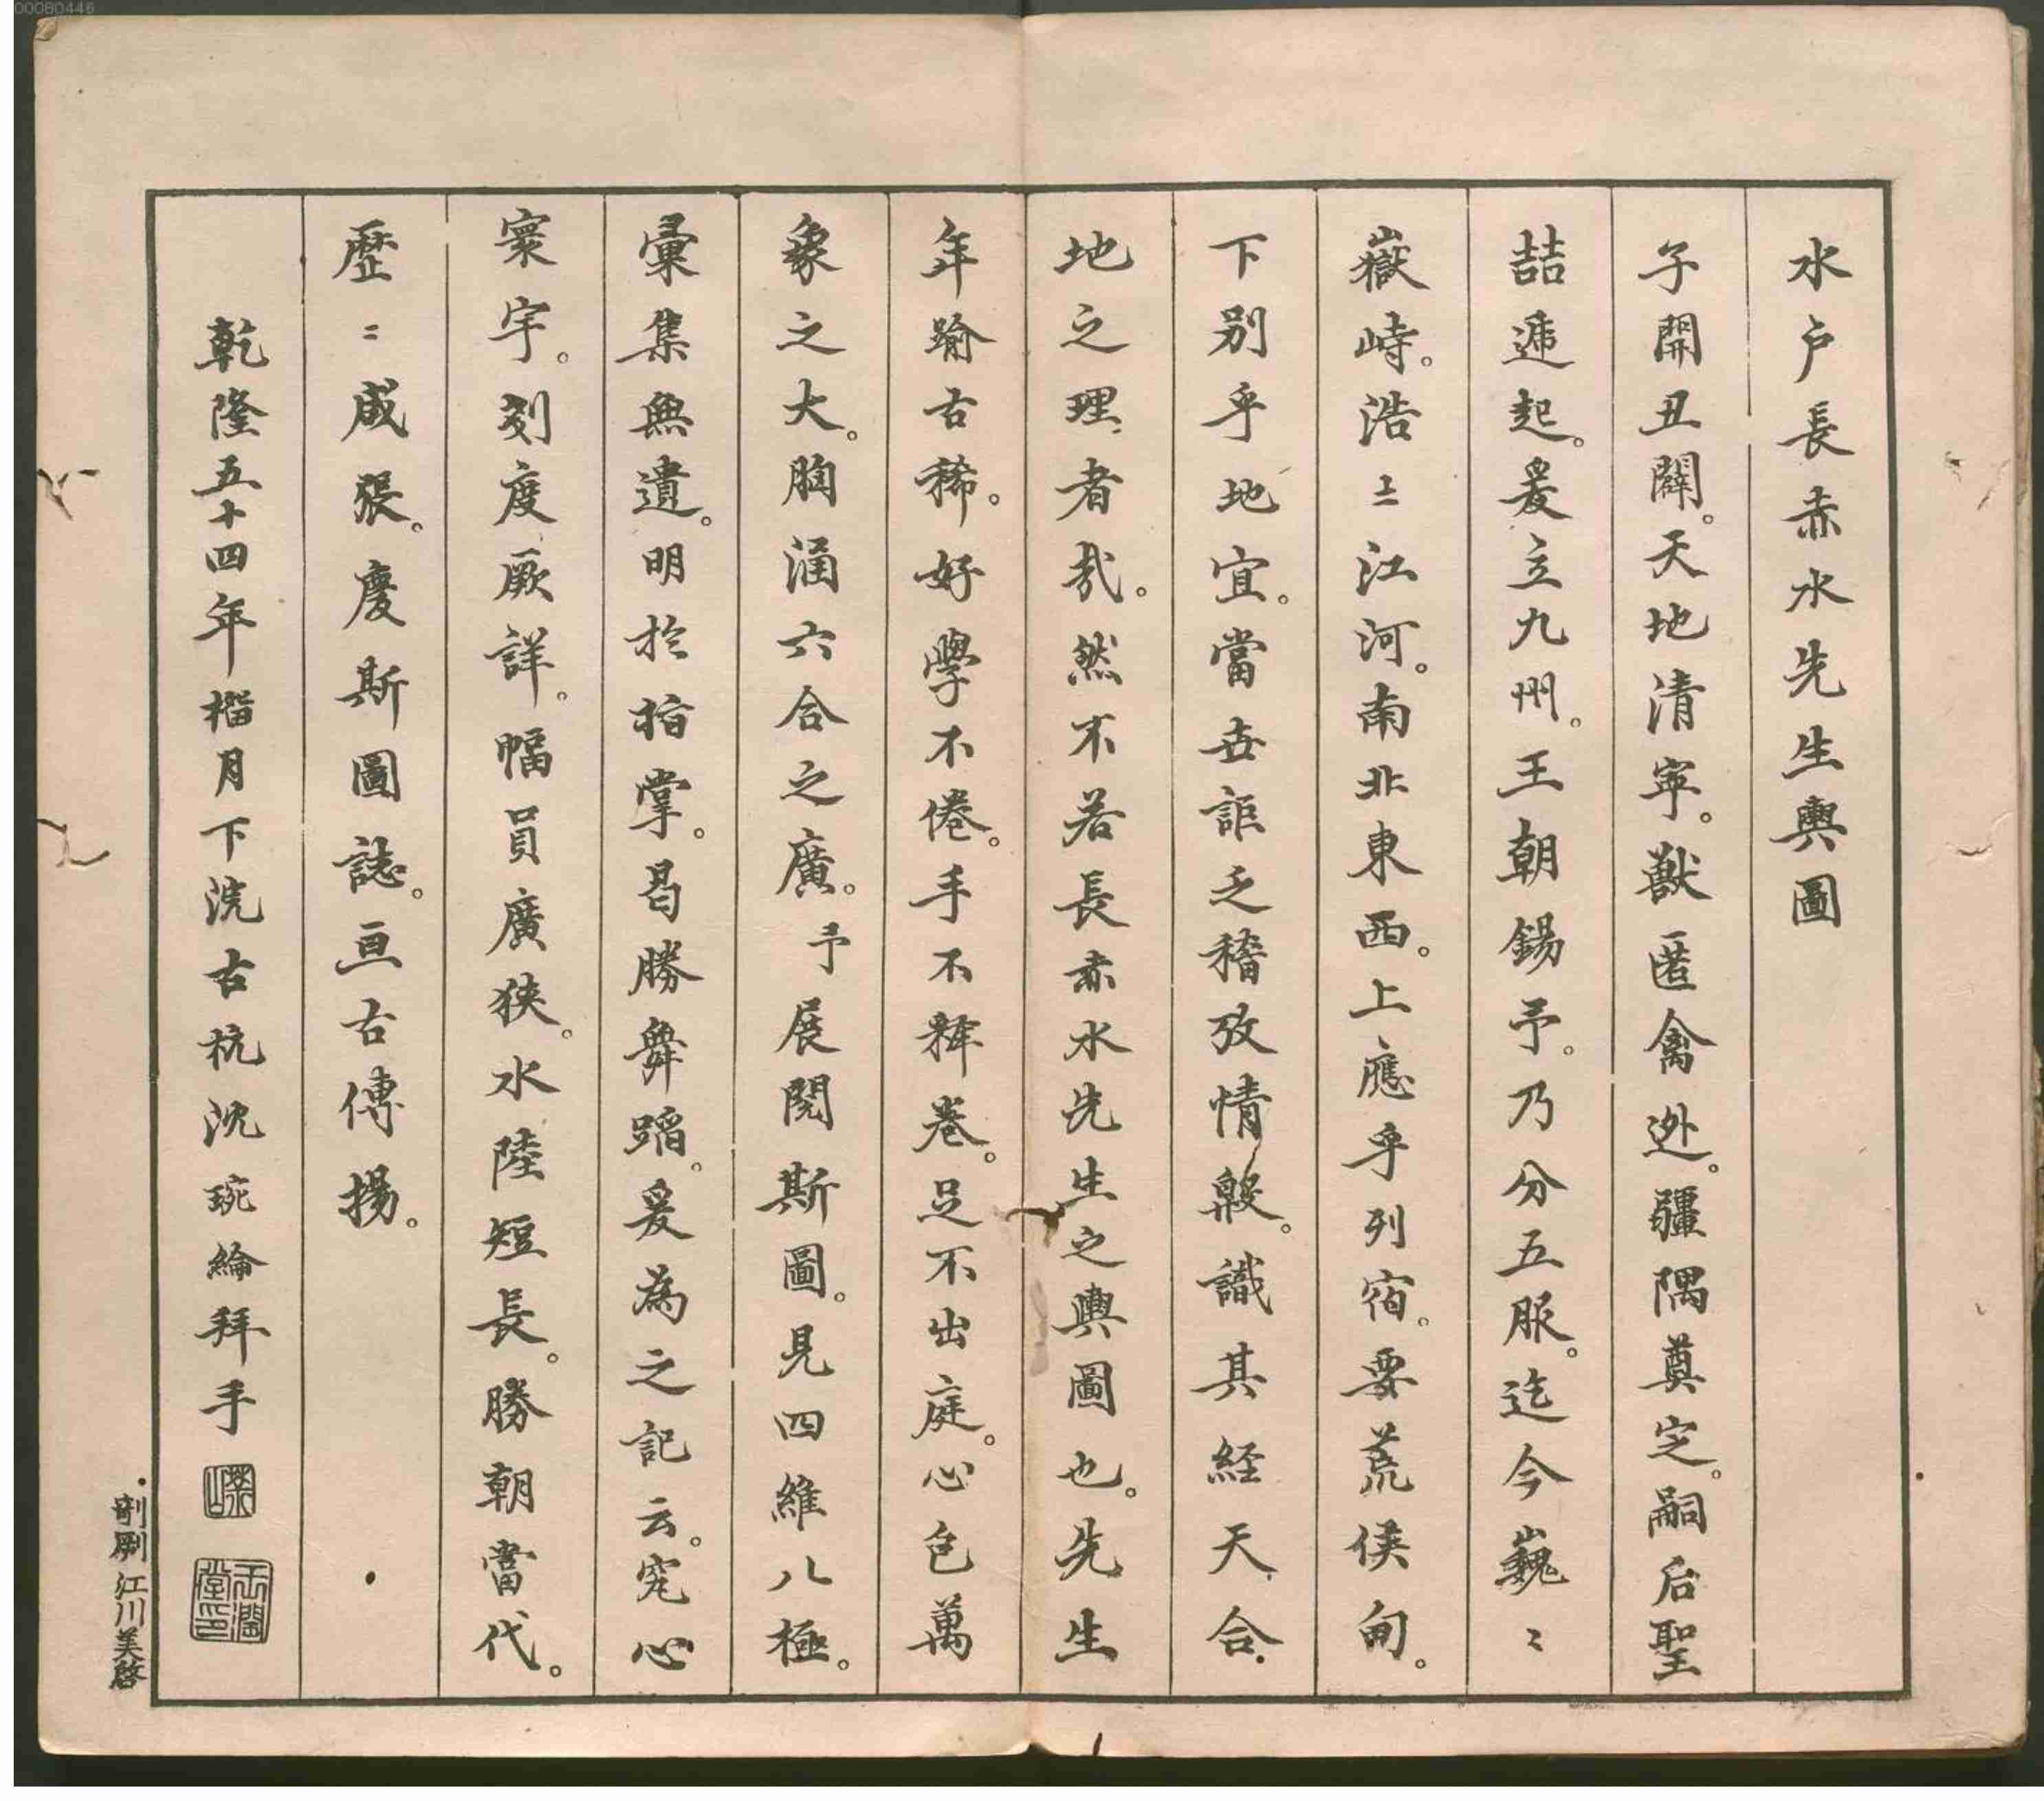 00080446
水戶長赤水先生輿圖
子開丑闢。天地清寧。獸匿禽逃。疆隅奠定。嗣后聖
喆遞起。爰立九州。王朝錫予。乃分五服。迄今巍〻
嶽峙。浩〻江河。南北東西。上應乎列宿。要荒侯甸。
下別乎地宜。當世詎乏稽攷情殷。識其経天合
地之理者㦲。然不若長赤水先生之輿圖也。先生
年踰古稀。好學不倦。手不釋卷。足不出庭。心包萬
象之大。胸涵六合之廣。予展閱斯圖。見四維八極。
彙集無遺。明於指掌。曷勝舞蹈。爰為之記云。究心
寰宇。刻度厥詳。幅員廣狹。水陸短長。勝朝當代。
歷〻咸張。慶斯圖誌。亘古傳揚。
乾隆五十四年榴月下浣古杭沈琬綸拜手
剞劂 江川美啓